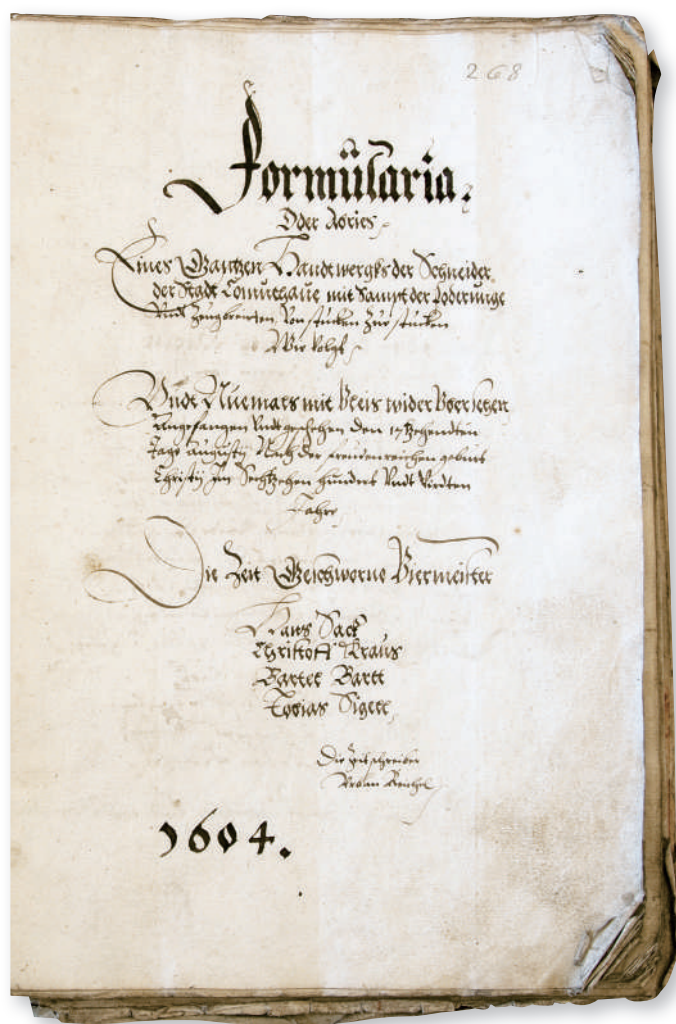 268
Formularia.
Oder Abries
Eines Gantzen Handtwergks der Schneider
der Stadt mit Sampt der Foderunge
Vndt Von stucken Zue stucken
Wie Volgt
Vndt Nuemals mit Vleis wider
Angefangen Vndt geschehen den 17 Zehendten
Tags augusty Nach der freudenreichen geburt
Christy Im Sechzehen hundert Vndt Virdten
Jahre
Die Zeit Geschworne Viermeister
Hans Sack
Christoff Kraus
Bartel Bartt
Tobias Sigell
Die Zeit schreiber
Urban Reichel
1604.